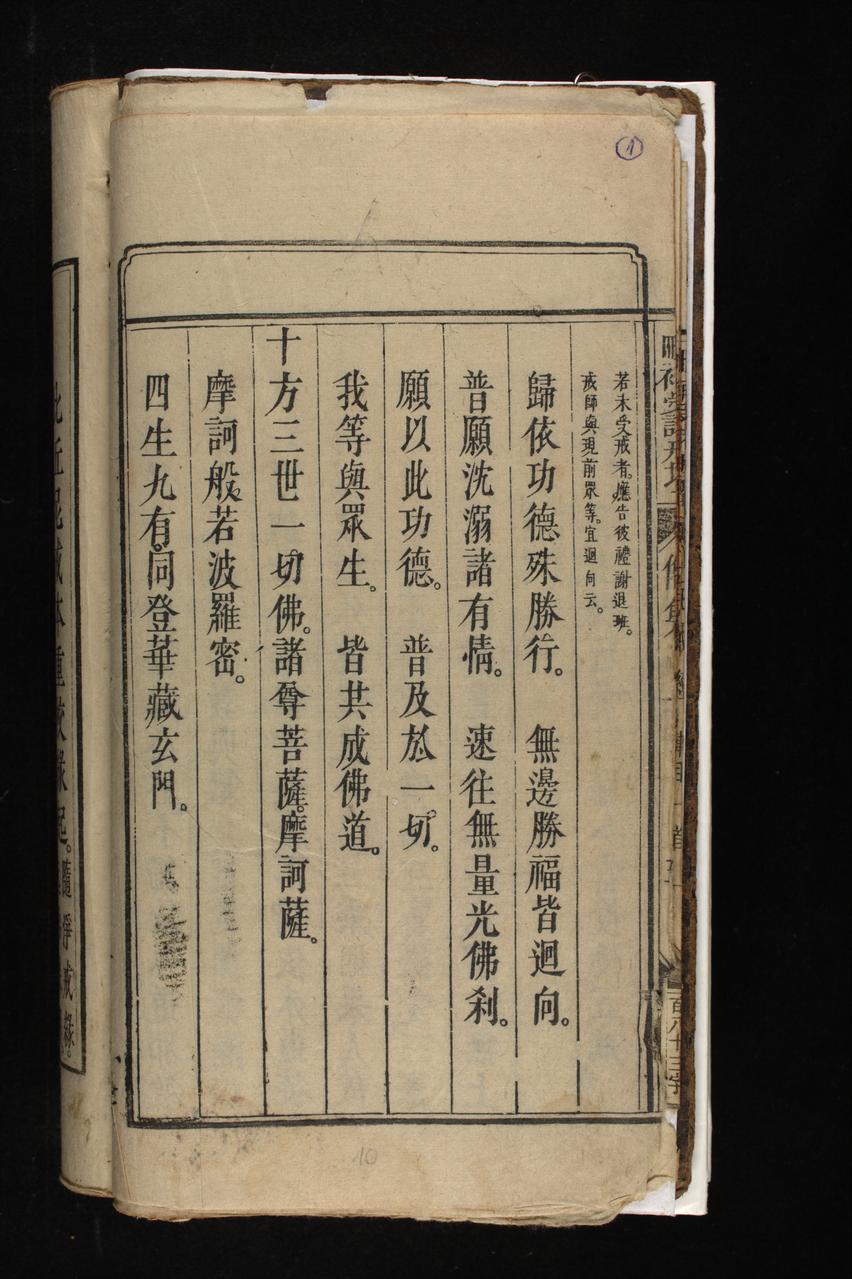 1
若未受戒者。應告彼禮謝退班。
戒師與現前眾等。宜迴向云。
歸依功德殊勝行。 無邊勝福皆迴向。
普願沈溺諸有情。 速往無量光佛剎。
願以此功德。 普及於一切。
我等與眾生。 皆共成佛道。
十方三世一切佛。諸尊菩薩。摩訶薩。
摩訶般若波羅密。
四生九有。同登華藏玄門。
比丘尼戒本重
起。隨
戒錄。
百八十三字
10